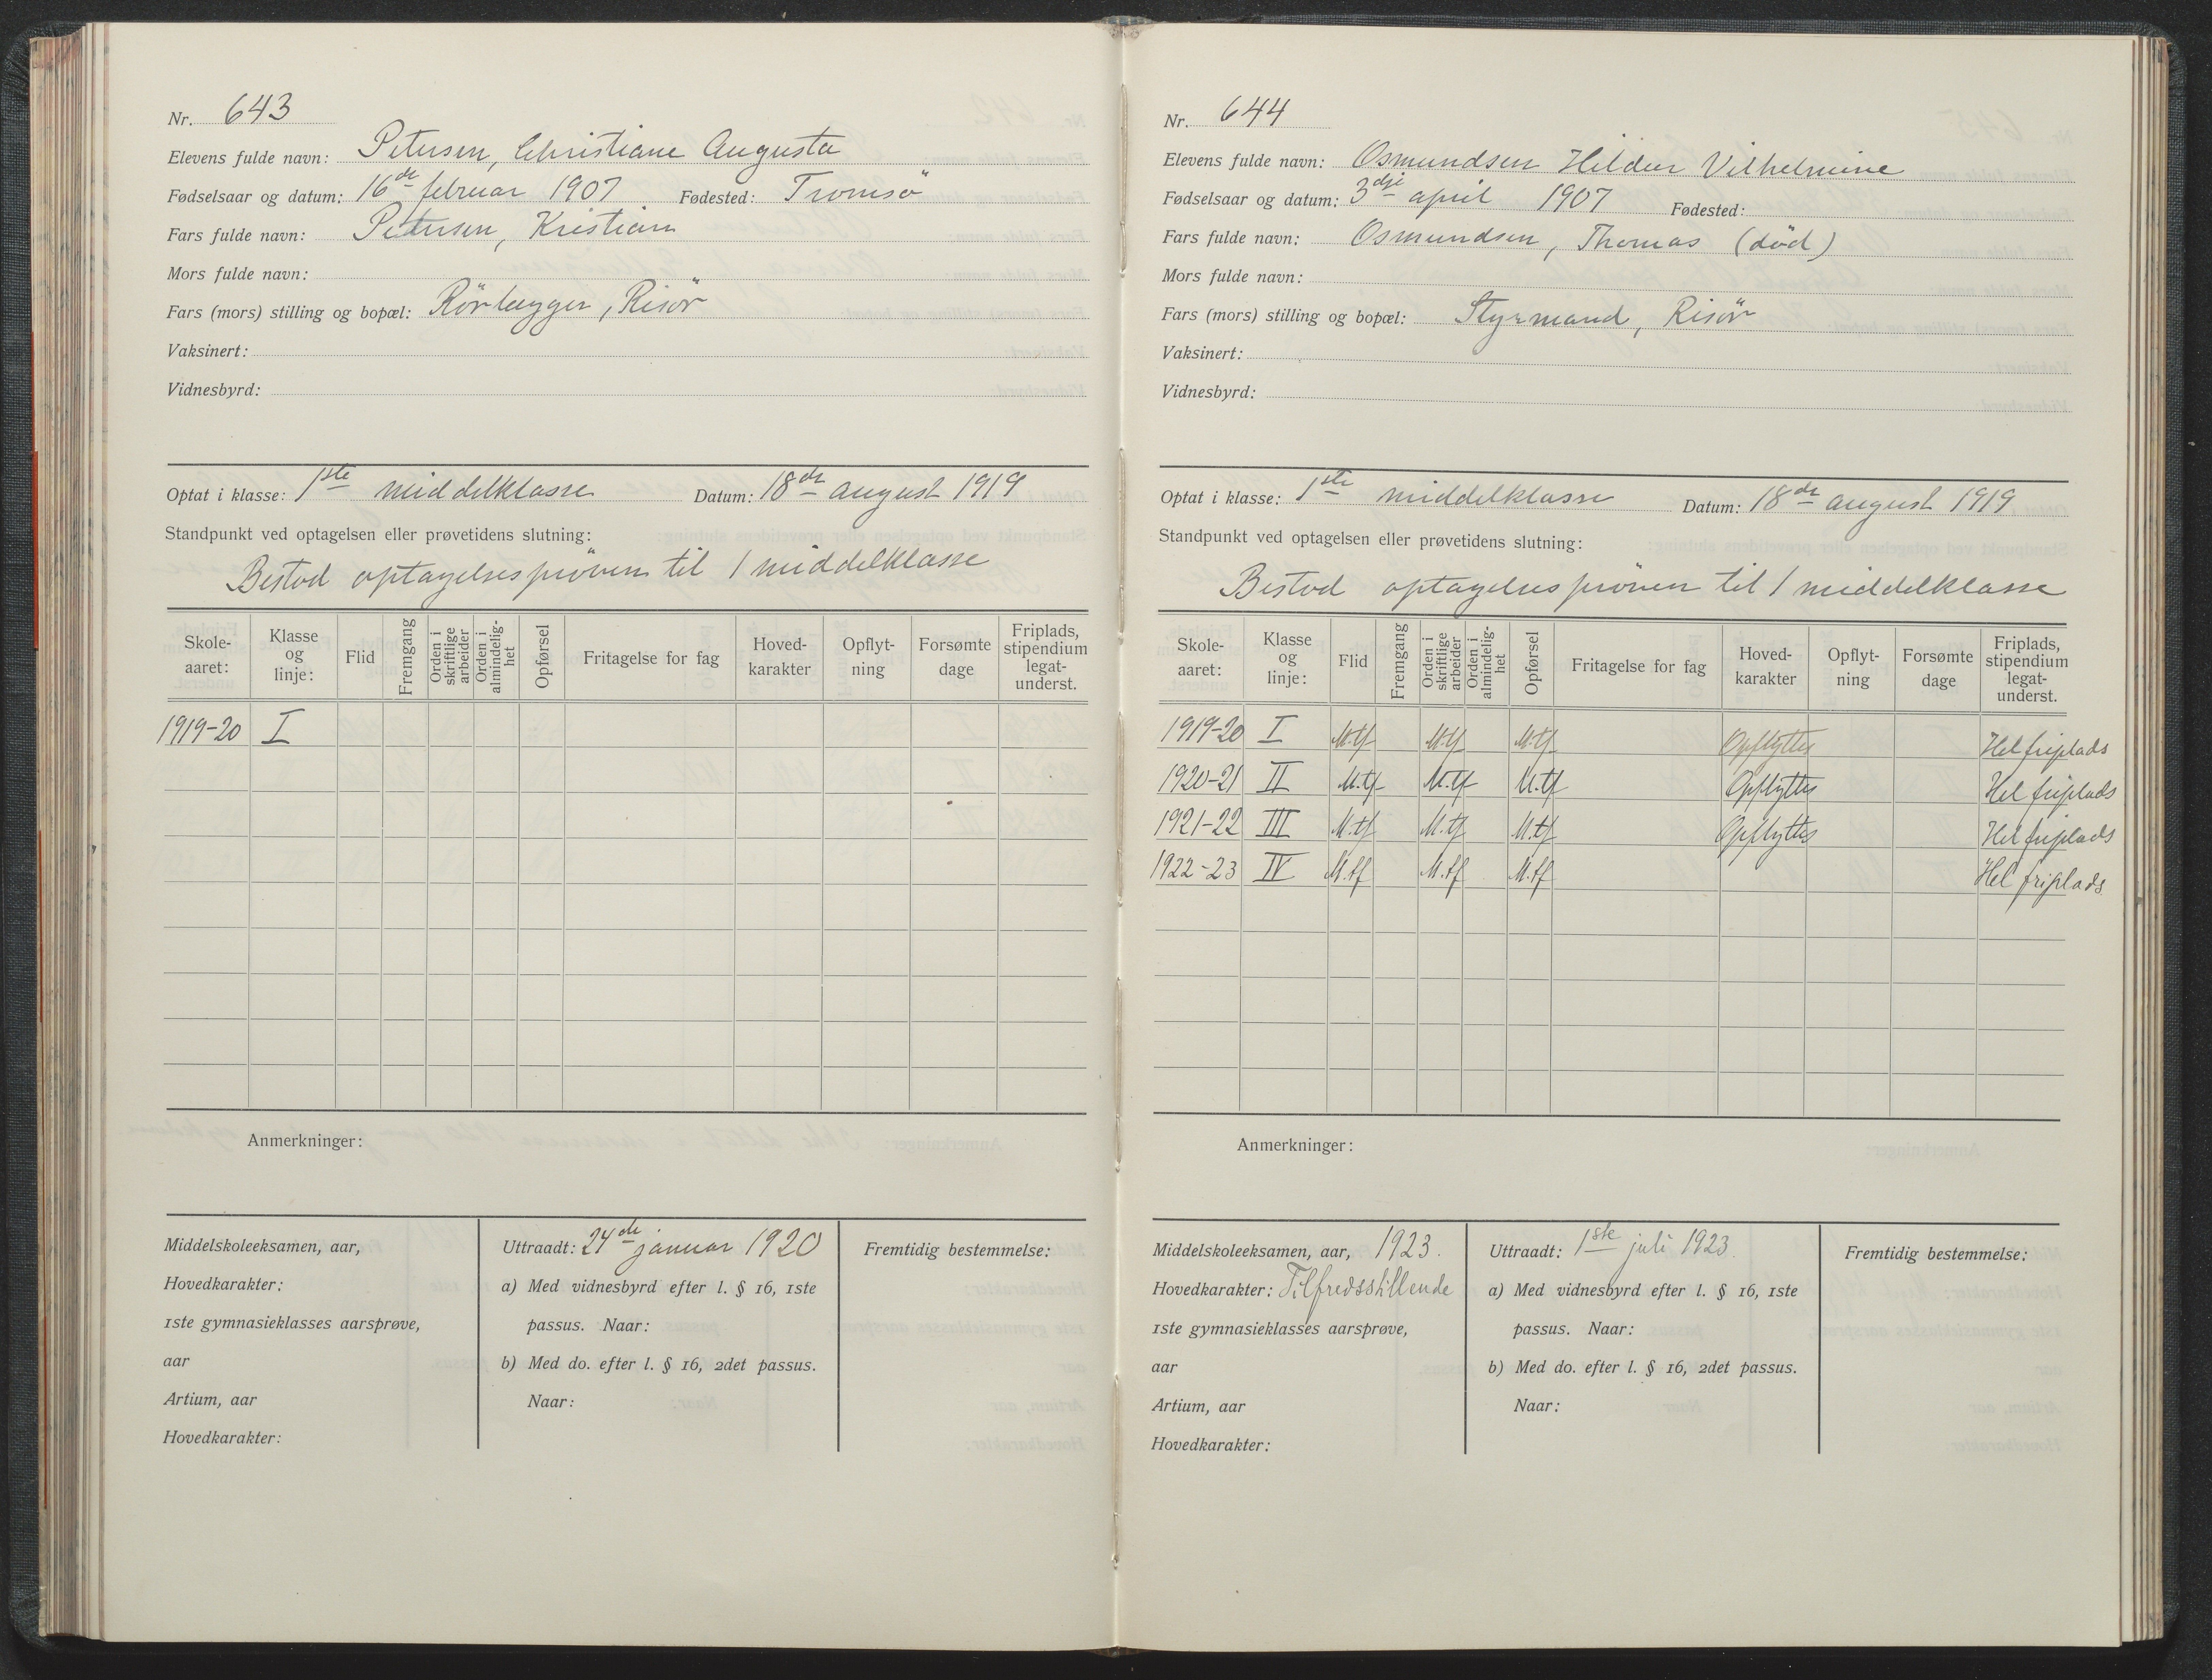 Nr. 643
Elevens fulde navn: Petersen, Christiane Augusta
Fødselsaar og datum: 16de februar 1907 Fødested: Tromsö
Fars fulde navn: Petersen, Kristian
Mors fulde navn:
Fars (mors) stilling og bopæl: Rörlægger, Risör
Vaksinert:
Vidnesbyrd:
Optat i klasse: 1ste middelklasse Datum: 18de august 1919
Standpunkt ved optagelsen eller prøvetidens slutning:
Bestod optagelsespröven til 1 middelklasse
Skole-aaret: Klasse og linje: Flid Fremgang Orden i skriftlige arbeider Orden i almindelig-het Opførsel Fritagelse for fag Hoved-karakter Opflyt-ning Forsømte dage Friplads, stipendium legat-underst.
1919-20 I
Anmerkninger:
Middelskoleeksamen, aar,
Hovedkarakter:
1ste gymnasieklasses aarsprøve,
aar
Artium, aar
Hovedkarakter:
Uttraadt: 24de januar 1920
a) Med vidnesbyrd efter l. § 16, 1ste
passus. Naar:
b) Med do. efter l. § 16, 2det passus.
Naar:
Fremtidig bestemmelse:
Nr. 644
Elevens fulde navn: Osmundsen Hildur Vilhelmine
Fødselsaar og datum: 3dje april 1907 Fødested:
Fars fulde navn: Osmundsen, Thomas (död)
Mors fulde navn:
Fars (mors) stilling og bopæl: Styrmand, Risör
Vaksinert:
Vidnesbyrd:
Optat i klasse: 1ste middelklasse Datum: 18de august 1919
Standpunkt ved optagelsen eller prøvetidens slutning:
Bestod optagelsespröven til 1 middelklasse
Skole-aaret: Klasse og linje: Flid Fremgang Orden i skriftlige arbeider Orden i almindelig-het Opførsel Fritagelse for fag Hoved-karakter Opflyt-ning Forsømte dage Friplads, stipendium legat-underst.
1919-20 I M.tf M.tf M.tf Opflyttes Hel friplads
1920-21 II M.tf M.tf M.tf Opflyttes Hel friplads
1921-22 III M.tf M.tf M.tf Opflyttes Hel friplads
1922-23 IV M.tf M.tf M.tf Hel friplads
Anmerkninger:
Middelskoleeksamen, aar, 1923.
Hovedkarakter: Tilfredsstillende
1ste gymnasieklasses aarsprøve,
aar
Artium, aar
Hovedkarakter:
Uttraadt: 1ste juli 1923.
a) Med vidnesbyrd efter l. § 16, 1ste
passus. Naar:
b) Med do. efter l. § 16, 2det passus.
Naar:
Fremtidig bestemmelse: